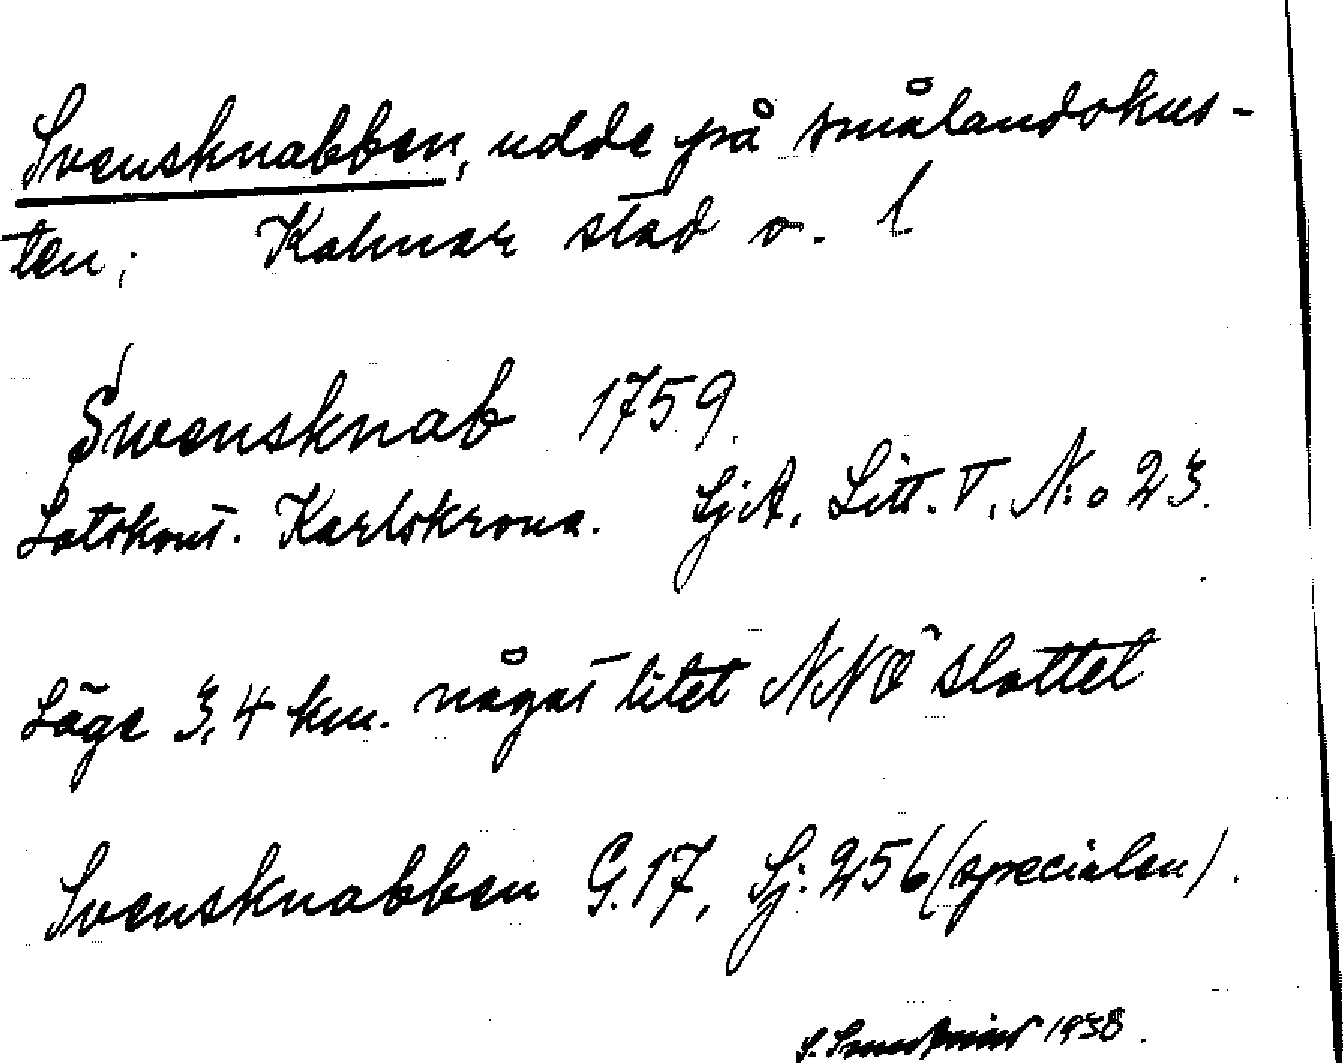 Svensknabben, udde på smålandskus-
ten; Kalmar stad o. l
Swensknab 1759.
Lotskont. Karlskrona. SjA, Litt. V, N:o 23.
Läge 3,4 km. något litet NNÖ slottet
Svensknabben G. 17, Sj: 256 (specialen).
1938.